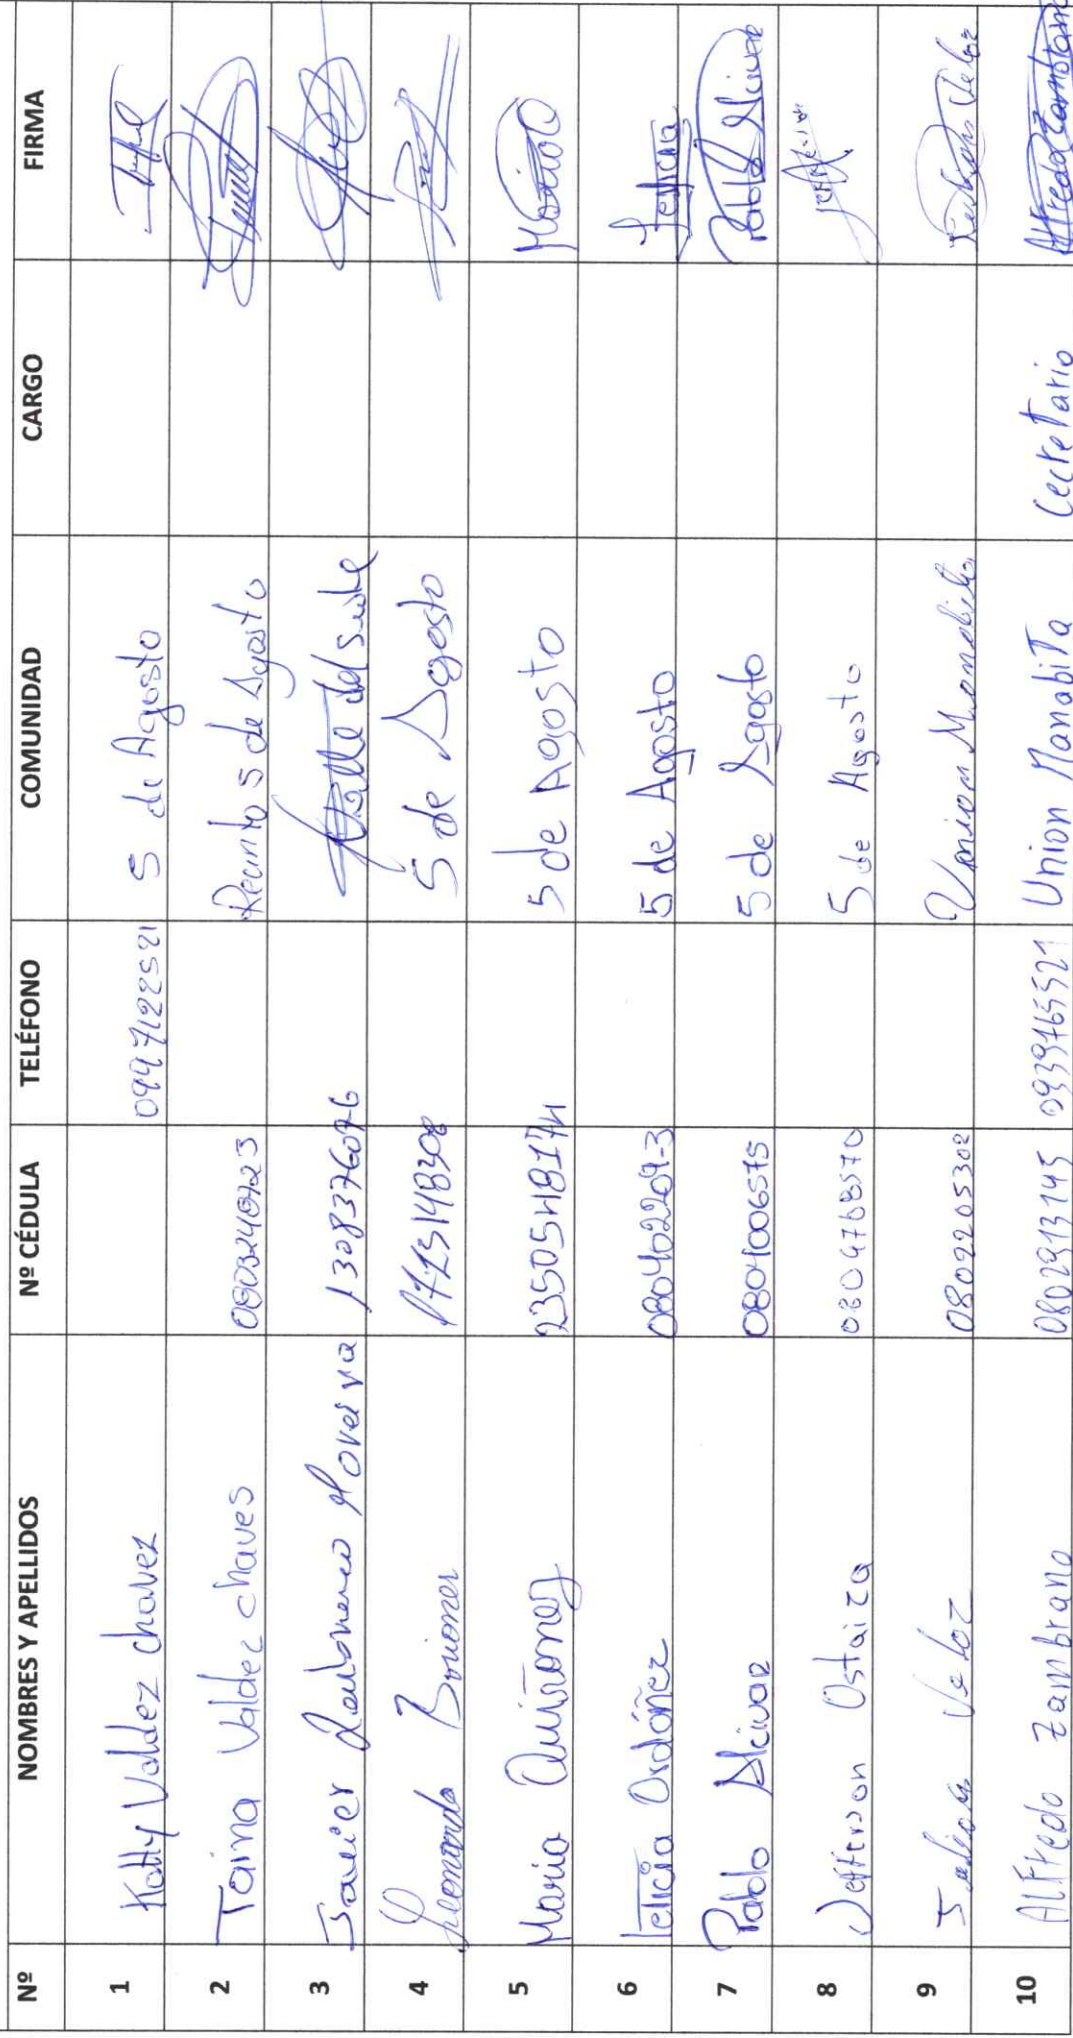 Nº NOMBRES Y APELLIDOS Nº CÉDULA TELÉFONO COMUNIDAD CARGO FIRMA
1 Katty Valdez chavez 0997122521 5 de Agosto
2 Taina Valdez chaves 0803240423 Recinto 5 de Agosto
3 Javier 1308376076 Valle del Sade
4 Leonardo Briones 1715148308 5 de Agosto
5 Maria Quiñonez 2350548174 5 de Agosto Maria
6 Leticia Ordóñez 080402209-3 5 de Agosto Leticia
7 Pablo Alcivar 0804006575 5 de Agosto Pablo Alcivar
8 Jefferson Ostaiza 0804768570 5 de Agosto
9 Veloz 0802205302 Union Manabita
10 Alfredo Zambrano 0802913145 0939765521 Union Manabita Cecretario Alfredo Zambrano